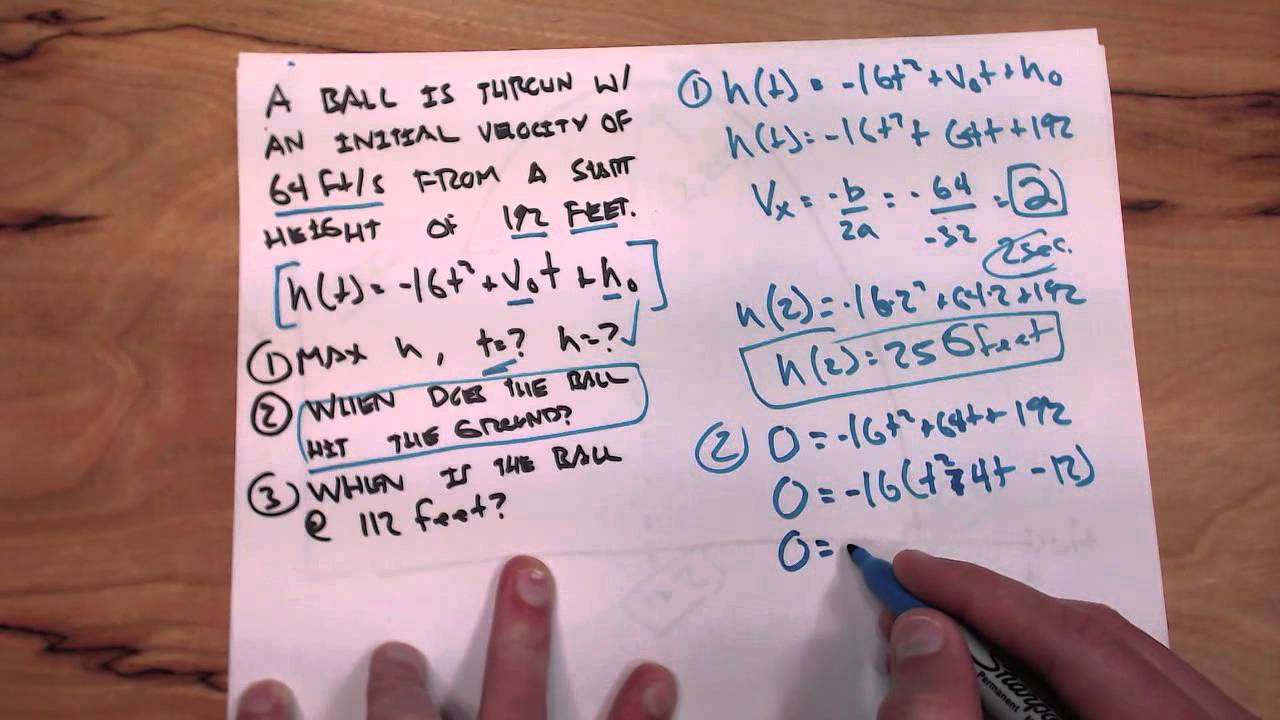 A BALL IS THROWN W/
AN INITIAL VELOCITY OF
64 Ft/s FROM A START
HEIGHT OF 192 FEET.
[h(t) = -16t² + V₀t + h₀]
① MAX h, t=? h=?
② WHEN DOES THE BALL
HIT THE GROUND?
③ WHEN IS THE BALL
@ 112 feet?
① h(t) = -16t² + V₀t + h₀
h(t) = -16t² + 64t + 192
Vₓ = -b/2a = -64/-32 = 2
2 sec.
h(2) = -16·2² + 64·2 + 192
h(2) = 256 feet
② 0 = -16t² + 64t + 192
0 = -16(t² - 4t - 12)
0 =
Sharpie
Permanent